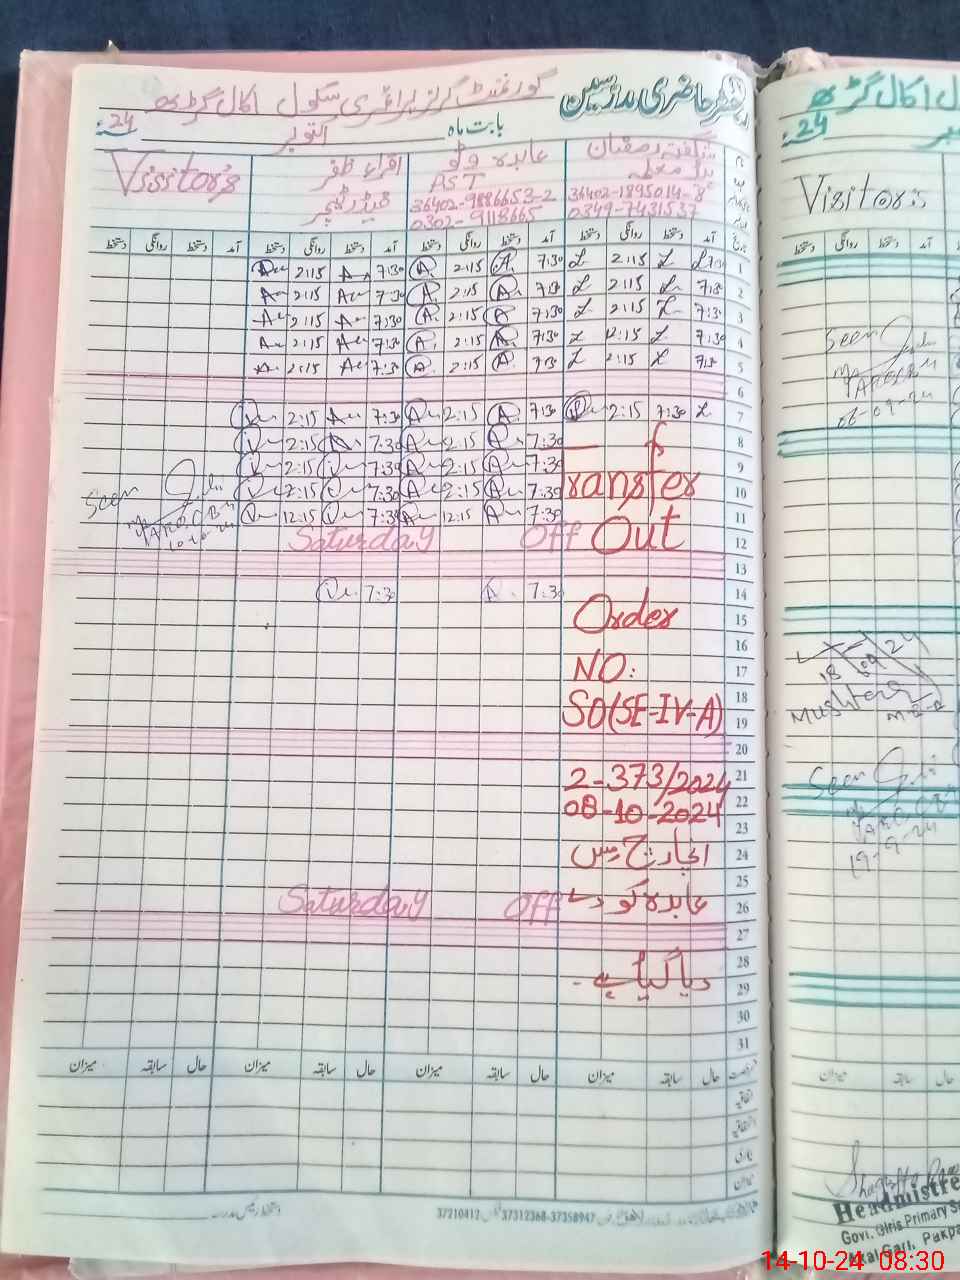 دفتر حاضری مدرسین
گورنمنٹ گرلز پرائمری سکول اکال گڑھ
بابت ماہ اکتوبر 24ء
شگفتہ رمضان
36402-1895014-8
0349-7431537
عابدہ وٹو
PST
36402-9886653-2
0302-9118665
اقراء ظفر
Visitor's
آمد دستخط روانگی دستخط آمد دستخط روانگی دستخط آمد دستخط روانگی دستخط آمد دستخط روانگی دستخط
1 7:30 2:15 7:30 2:15 7:30 2:15
2 7:30 2:15 7:30 2:15 7:30 2:15
3 7:30 2:15 7:30 2:15 7:30 2:15
4 7:30 12:15 7:30 2:15 7:30 2:15
5 7:30 2:15 7:30 2:15 7:30 2:15
6
7 7:30 2:15 7:30 2:15 7:30 2:15
8 7:30 2:15 7:30 2:15
9 7:30 2:15 7:30 2:15
10 7:30 2:15 7:30 2:15
11 7:30 12:15 7:30 12:15
Seen
10-10-24
Transfer
Out
12 Saturday Off
13
14 7:30 7:30
15 Order
16
17 NO:
18 SO(SE-IV-A)
19
20
21 2-373/2024
22 08-10-2024
23
24 انچارج مس
25
26 عابدہ کو دے
Saturday Off
27
28 دیا گیا ہے۔
29
30
31
حال سابقہ میزان حال سابقہ میزان حال سابقہ میزان حال سابقہ میزان
37210412 37312368-37358947
اکال گڑھ
24ء
Visitor's
دستخط روانگی دستخط آمد
Seen
06-09-24
18 09 24
Mushtaq
Seen
19-9-24
میزان سابقہ حال
Headmistre
Govt. Girls Primary S
Akal Garh, Pakpa
14-10-24 08:30